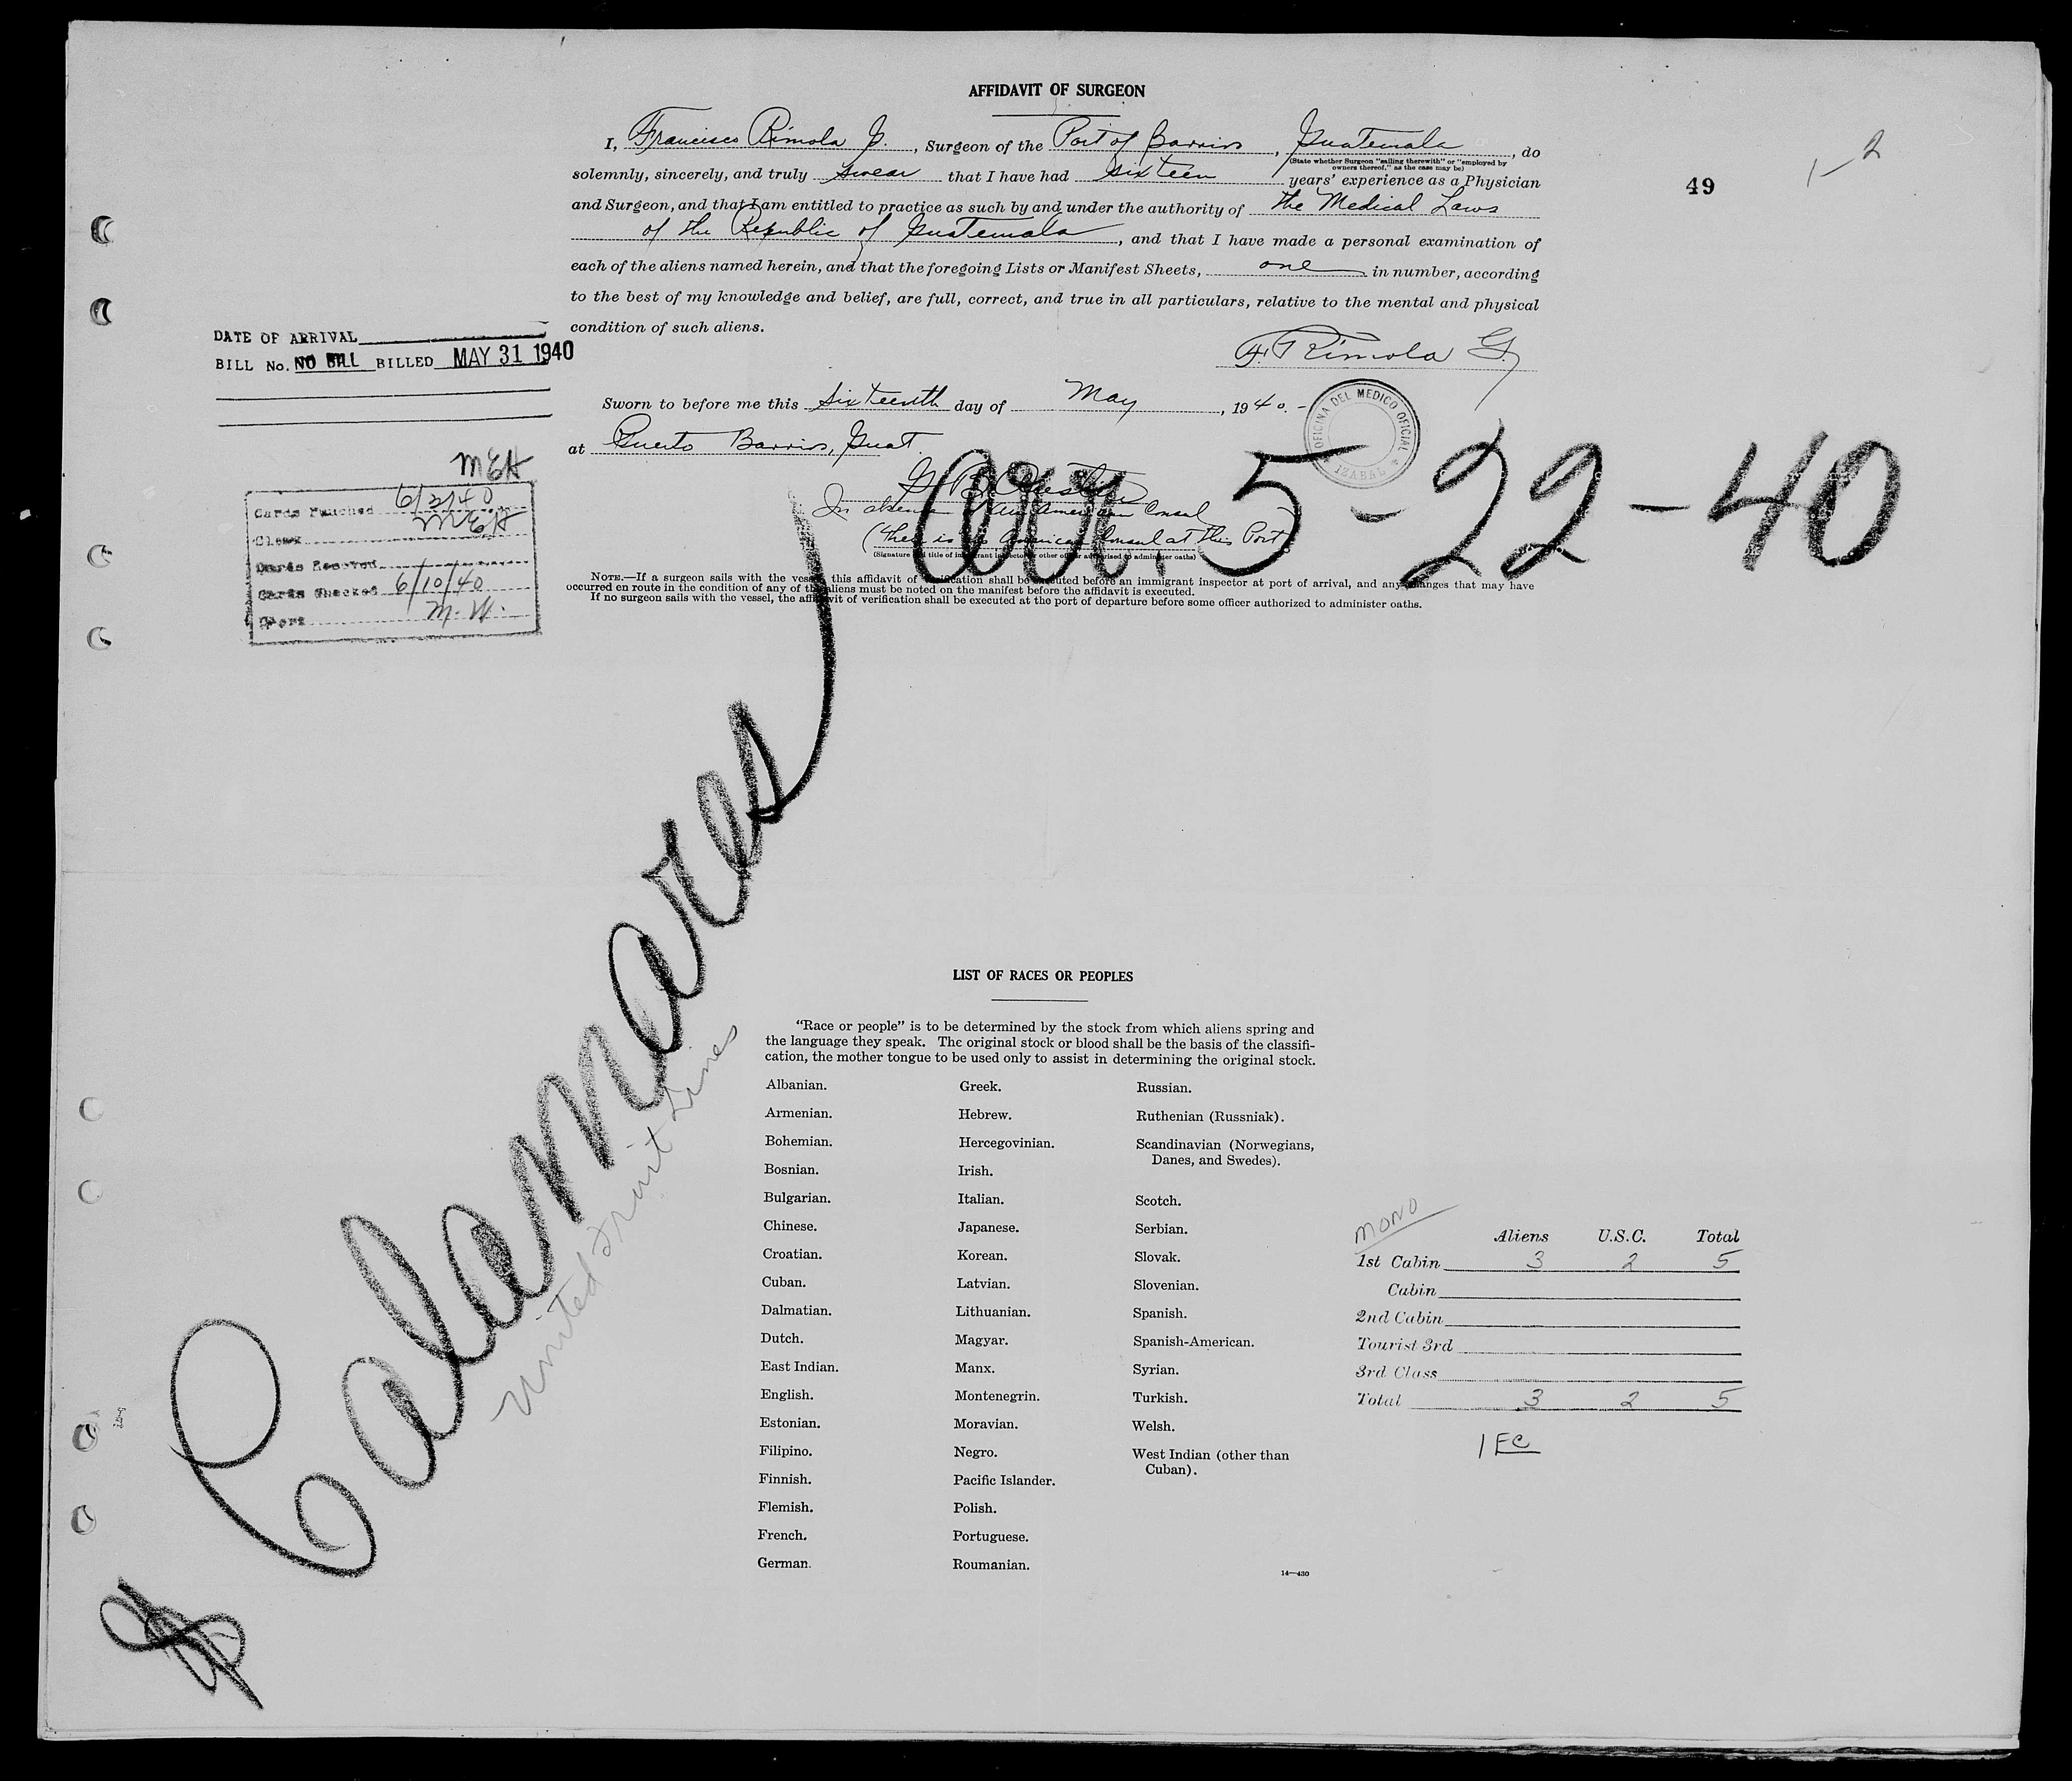 AFFIDAVIT OF SURGEON
I, Francisco Rimola G., Surgeon of the Port of Barrios, Guatemala, do
(State whether Surgeon "sailing therewith" or "employed by
owners thereof," as the case may be)
solemnly, sincerely, and truly swear that I have had sixteen years' experience as a Physician
and Surgeon, and that I am entitled to practice as such by and under the authority of the Medical Laws
of the Republic of Guatemala, and that I have made a personal examination of
each of the aliens named herein, and that the foregoing Lists or Manifest Sheets, one in number, according
to the best of my knowledge and belief, are full, correct, and true in all particulars, relative to the mental and physical
condition of such aliens.
49
1-2
F. Rimola G.
DATE OF ARRIVAL
BILL No. NO BILL BILLED MAY 31 1940
Sworn to before me this sixteenth day of May, 1940.-
at Puerto Barrios, Guat.
OFICINA DEL MEDICO OFICIAL
IZABAL
arr. 5-22-40
In absence American Consul
(There is no American Consul at this Port
(Signature and title of immigrant inspector or other officer authorised to administer oaths)
MEH
Cards Punched 6/3/40
Clerk MEH
Cards Received
Cards Checked 6/10/40
Clerk M. W.
NOTE.—If a surgeon sails with the vessel this affidavit of verification shall be executed before an immigrant inspector at port of arrival, and any changes that may have
occurred en route in the condition of any of the aliens must be noted on the manifest before the affidavit is executed.
If no surgeon sails with the vessel, the affidavit of verification shall be executed at the port of departure before some officer authorized to administer oaths.
Calamares
United Fruit Lines
LIST OF RACES OR PEOPLES
"Race or people" is to be determined by the stock from which aliens spring and
the language they speak. The original stock or blood shall be the basis of the classifi-
cation, the mother tongue to be used only to assist in determining the original stock.
Albanian.
Armenian.
Bohemian.
Bosnian.
Bulgarian.
Chinese.
Croatian.
Cuban.
Dalmatian.
Dutch.
East Indian.
English.
Estonian.
Filipino.
Finnish.
Flemish.
French.
German.
Greek.
Hebrew.
Hercegovinian.
Irish.
Italian.
Japanese.
Korean.
Latvian.
Lithuanian.
Magyar.
Manx.
Montenegrin.
Moravian.
Negro.
Pacific Islander.
Polish.
Portuguese.
Roumanian.
Russian.
Ruthenian (Russniak).
Scandinavian (Norwegians,
Danes, and Swedes).
Scotch.
Serbian.
Slovak.
Slovenian.
Spanish.
Spanish-American.
Syrian.
Turkish.
Welsh.
West Indian (other than
Cuban).
14—430
MONO
Aliens U.S.C. Total
1st Cabin 3 2 5
Cabin
2nd Cabin
Tourist 3rd
3rd Class
Total 3 2 5
1 EC